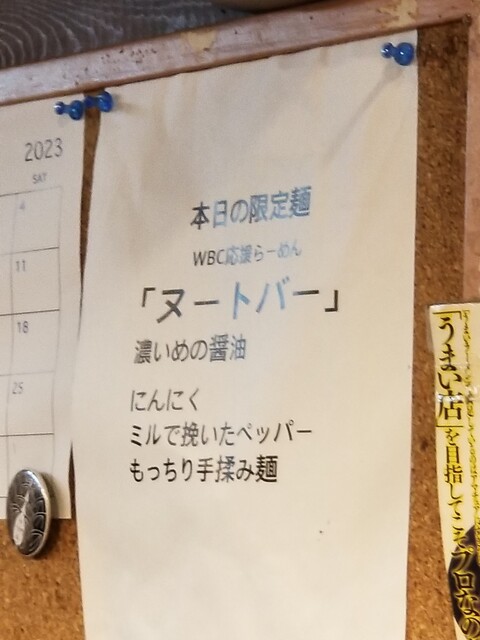 2023
SAT
4
11
18
25
本日の限定麺
WBC応援らーめん
「ヌートバー」
濃いめの醤油
にんにく
ミルで挽いたペッパー
もっちり手揉み麺
「うまい店」を目指してこそプロなの